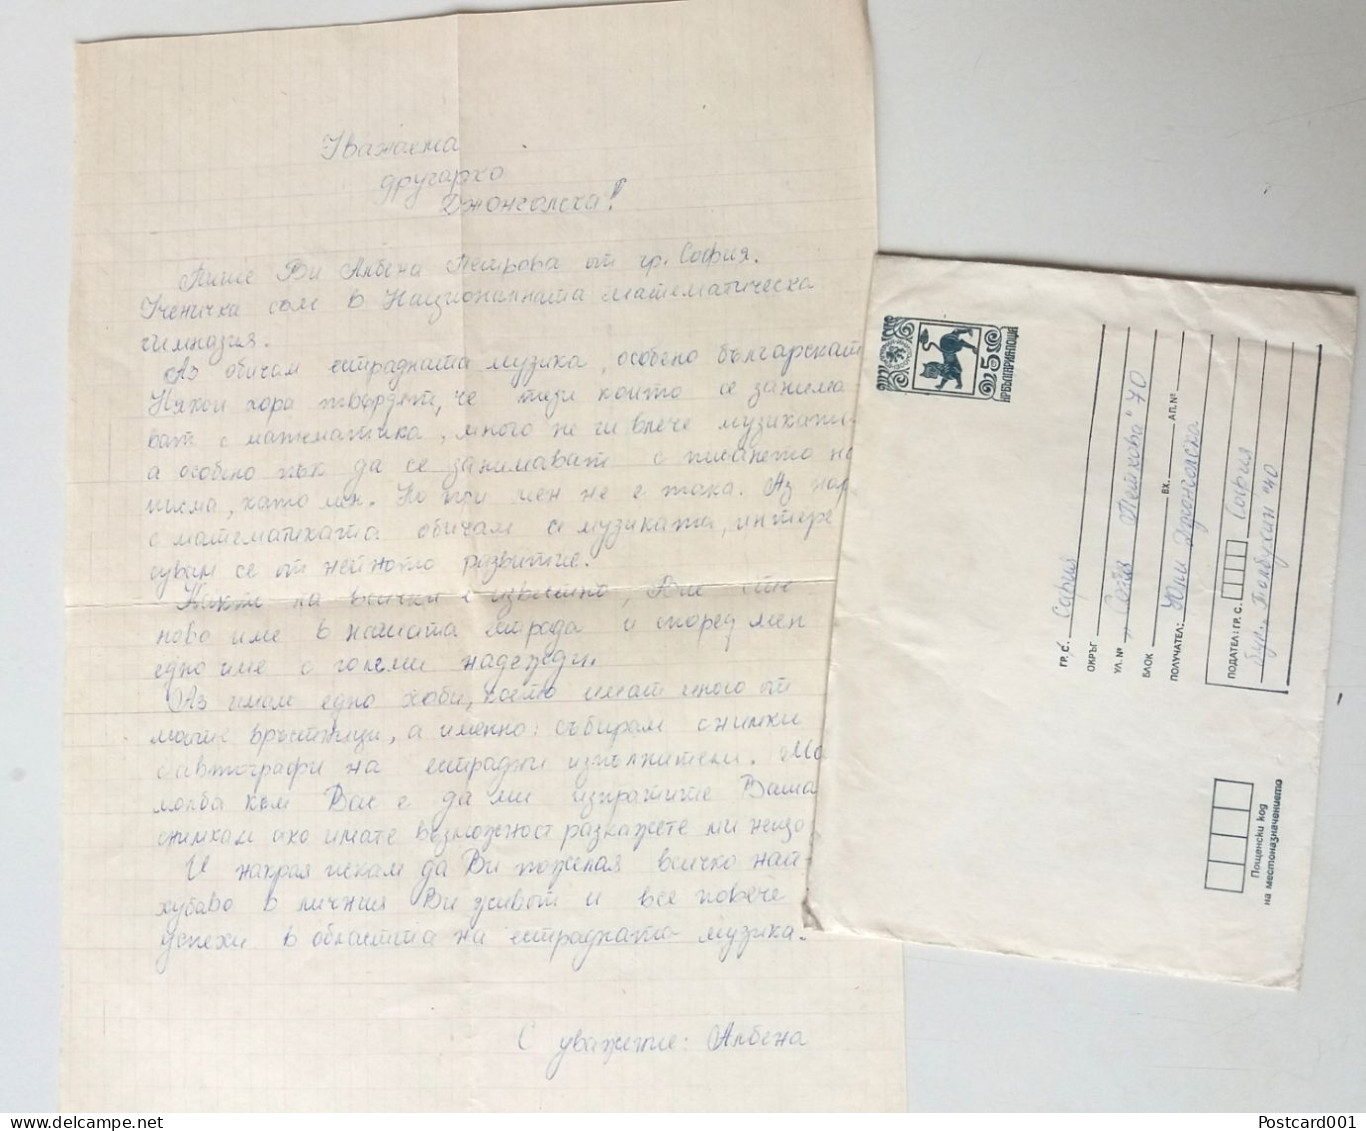 Уважаема
другарко
Джонголска!
Пише Ви Албена Петрова от гр. София.
Ученичка съм в Националната математическа
гимназия.
Аз обичам естрадната музика, особено българскат
Някои хора твърдят, че тези които се занима-
ват с математика, много не ги влече музиката-
а особено пък да се занимават с писането на
писма, като мен. Но при мен не е така. Аз нар
с математиката обичам и музиката, интере
сувам се от нейното развитие.
на всички е известно, Вие сте
ново име в нашата естрада и според мен
едно име с големи надежди.
Аз имам едно хоби, което имат много от
моите връстници, а именно: събирам снимки
с автографи на естрадни изпълнители. Мо
молба към Вас е да ми изпратите Ваша
снимка и ако имате възможност разкажете ми нещо
И накрая искам да Ви пожелая всичко най-
хубаво в личния Ви живот и все повече
успехи в областта на естрадната музика.
С уважение: Албена
5
НР БЪЛГАРИЯ ПОЩА
ГР. С. София
ОКРЪГ
УЛ. № "Соня Петкова" 70
БЛОК ВХ. АП. №
ПОЛУЧАТЕЛ: Юри Джонголска
ПОДАТЕЛ: ГР. С. София
бул. Толбухин 40
Пощенски код
на местоназначението
Postcard001